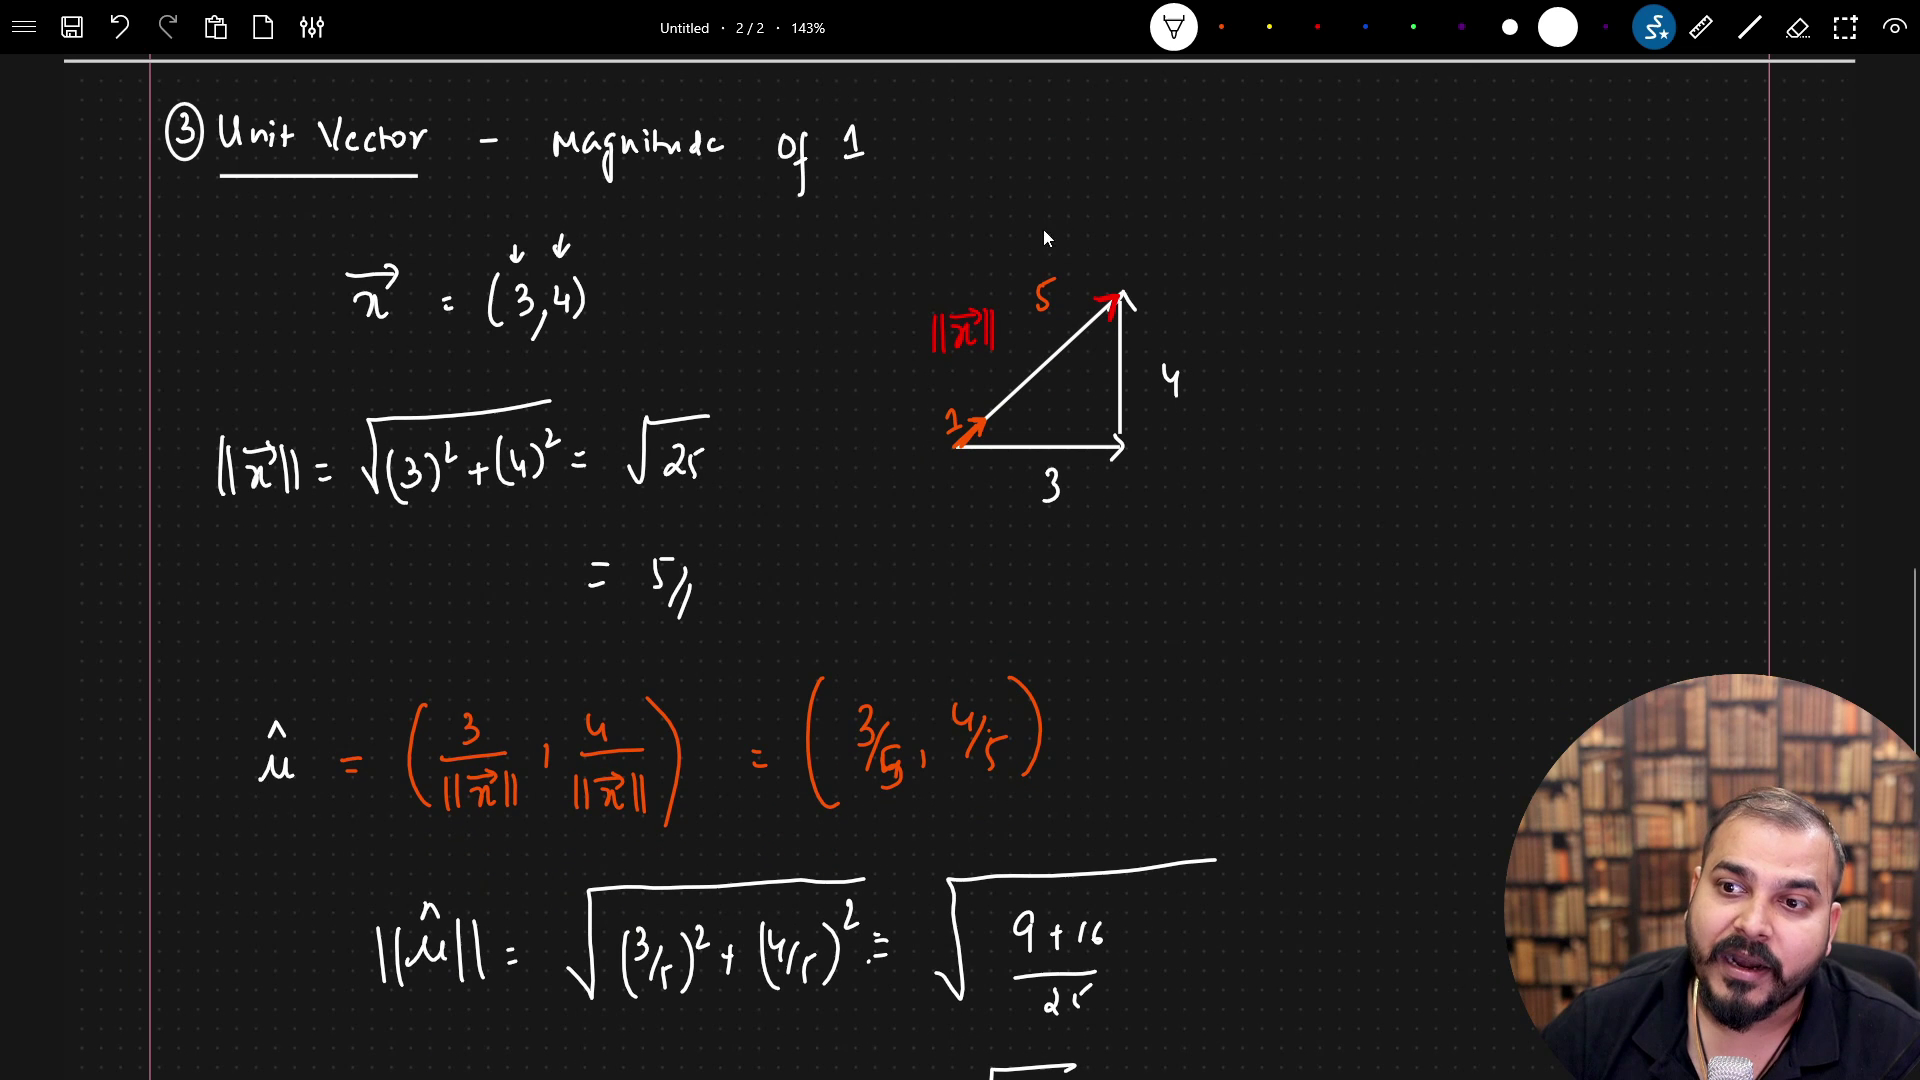 Untitled · 2 / 2 · 143%
③ Unit Vector - Magnitude Of 1
x⃗ = (3,4)
||x⃗|| 5
1 4
3
||x⃗|| = √(3)² + (4)² = √25
= 5//
û = ( 3/||x⃗|| , 4/||x⃗|| ) = ( 3/5 , 4/5 )
||û|| = √(3/5)² + (4/5)² = √(9+16)/25